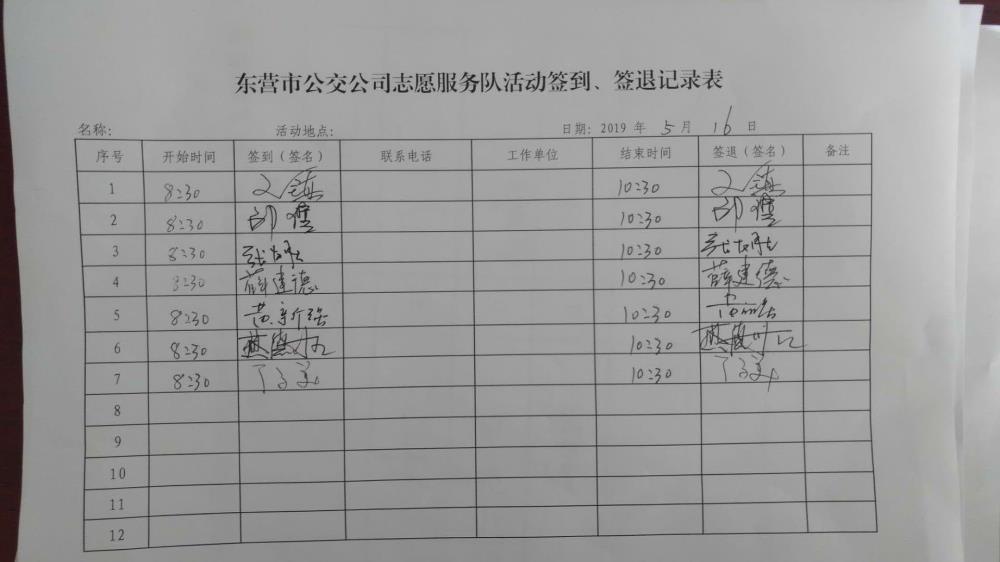 东营市公交公司志愿服务队活动签到、签退记录表
名称: 活动地点: 日期: 2019 年 5 月 16 日
序号 开始时间 签到(签名) 联系电话 工作单位 结束时间 签退(签名) 备注
1 8:30 10:30
2 8:30 10:30
3 8:30 10:30
4 8:30 薛建德 10:30 薛建德
5 8:30 黄新强 10:30
6 8:30 10:30
7 8:30 10:30
8
9
10
11
12